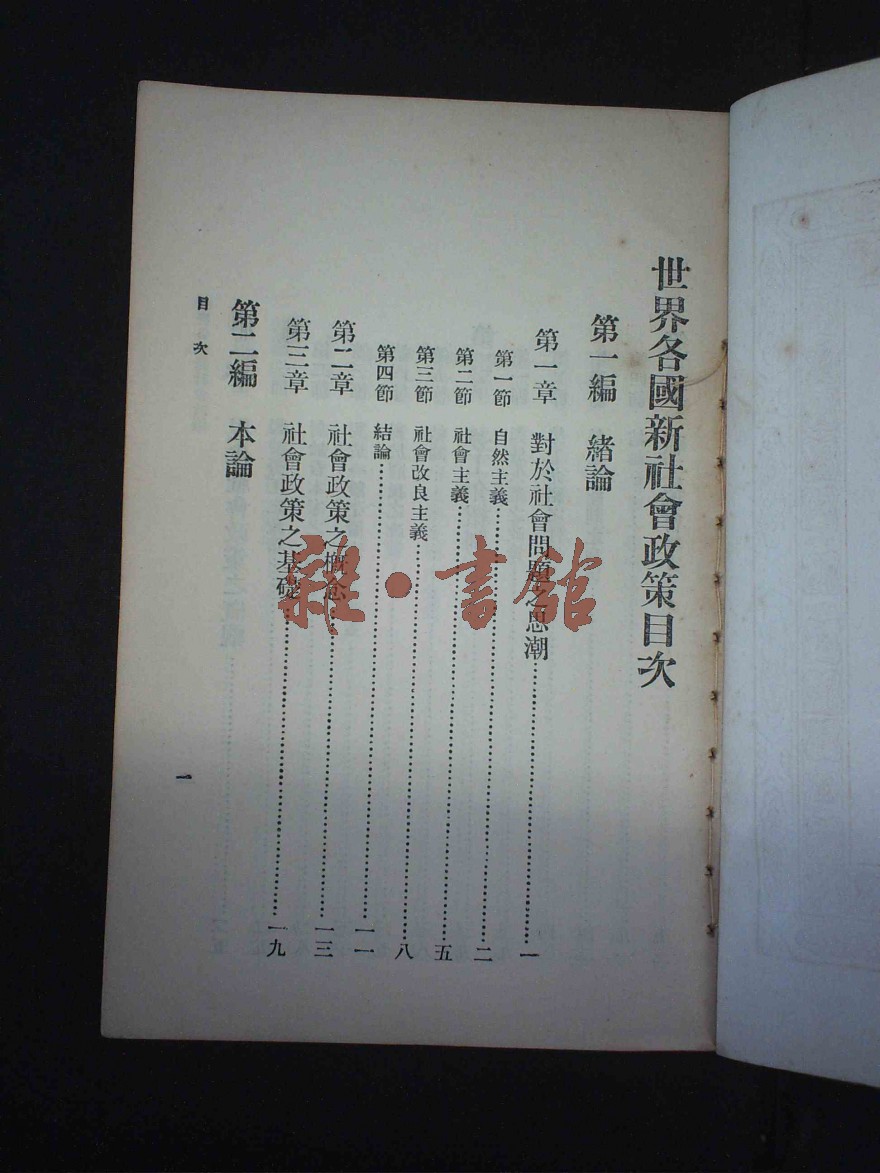 世界各國新社會政策目次
第一編 緒論
第一章 對於社會問題之思潮……一
第一節 自然主義……二
第二節 社會主義……五
第三節 社會改良主義……八
第四節 結論……一一
第二章 社會政策之概念……一三
第三章 社會政策之基礎……一九
第二編 本論
目次
一
雜·書館